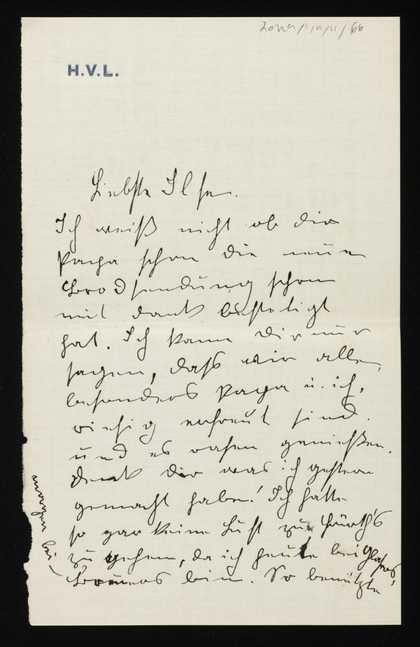 H.V.L.
Liebste Ilse.
Ich weiß nicht ob dir
Papa schon die neue
Brodsendung schon
mit dank bestetigt
hat. Ich kann Dir nur
sagen, daß wir alle,
besonders Papa u. ich,
riesig erfreut sind
und es rasen genießen.
Denk dir was ich gestern
gemacht habe! Ich hatte
so gar keine Lust zu Hürth's
zu gehen, da ich heute bei
bin. So benützte